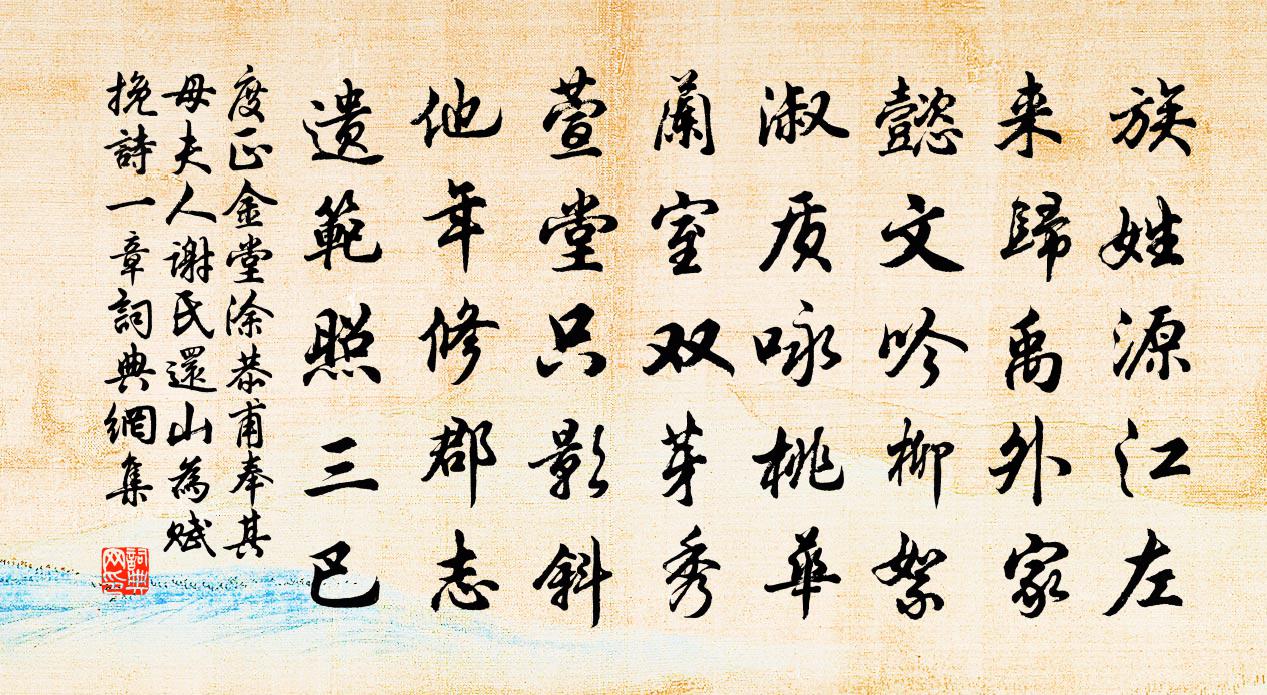 族姓源江左
来歸禹外家
懿文吟柳絮
淑质咏桃華
蘭室双芽秀
萱堂只影斜
他年修郡志
遺範照三巴
度正金堂涂恭甫奉其
母夫人谢氏還山為赋
挽詩一章詞典網集
詞典
网